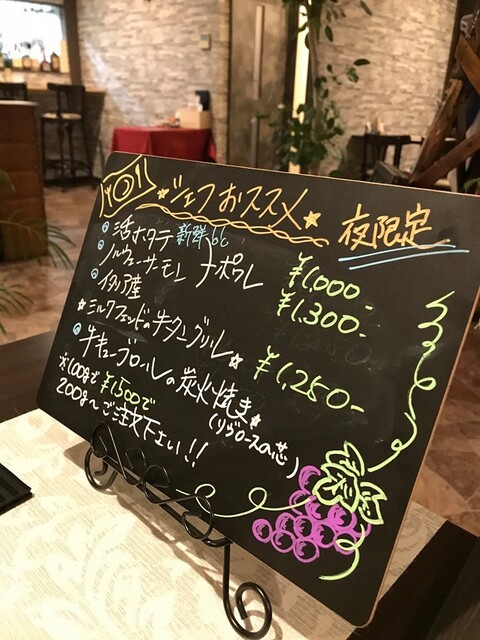 シェフおススメ
夜限定
活ホタテ 新鮮
ノルウェーサーモン ナポワレ
¥1,000-
¥1,300-
イタリア産
ミルクフェッドの牛タングリル
¥1,250-
牛キューブロールの炭火焼き
(リブロースの芯)
※100gで¥1,500で
200g〜ご注文下さい!!